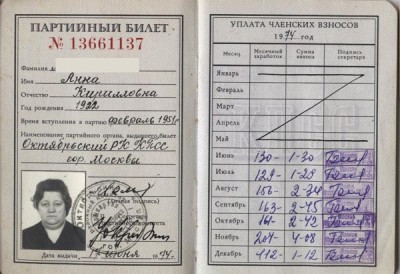 ПАРТИЙНЫЙ БИЛЕТ
№ 13661137
Фамилия
Имя Анна
Отчество Кирилловна
Год рождения 1922
Время вступления в партию февраль 1951 г.
Наименование партийного органа, выдавшего билет
Октябрьский РК КПСС
гор. Москвы
(личная подпись)
Дата выдачи июня 1974 г.
УПЛАТА ЧЛЕНСКИХ ВЗНОСОВ
1974 год
Месяц Месячный заработок Сумма взноса Подпись секретаря
Январь
Февраль
Март
Апрель
Май
Июнь 130- 1-30
Июль 129- 1-29
Август 156- 2-34
Сентябрь 163- 2-45
Октябрь 161- 2-42
Ноябрь 204- 4-08
Декабрь 112- 1-12